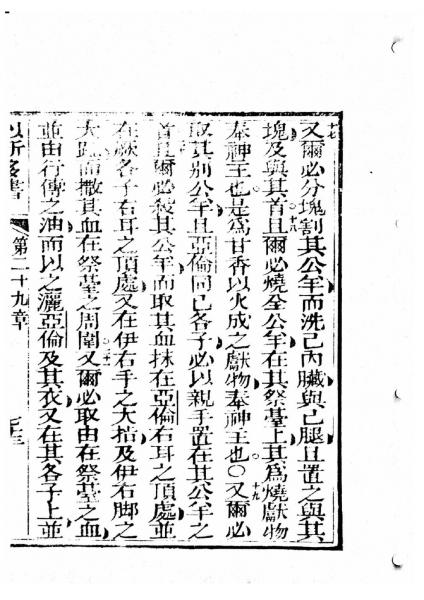 十七
又爾必分塊割其公羊而洗己內臟與己腿且置之與其
塊及與其首且爾必燒全公羊在其祭臺上其爲燒獻物
十八
奉神主也是爲甘香以火成之獻物奉神主也〇又爾必
十九
取其別公羊且亞倫同己各子必以親手置在其公羊之
首且爾必殺其公羊而取其血抹在亞倫右耳之頂處並
在厥各子右耳之頂處又在伊右手之大指及伊右脚之
大趾而撒其血在祭臺之周圍又爾必取由在祭臺之血
並由行傅之油而以之灑亞倫及其衣又在其各子上並
第二十九章